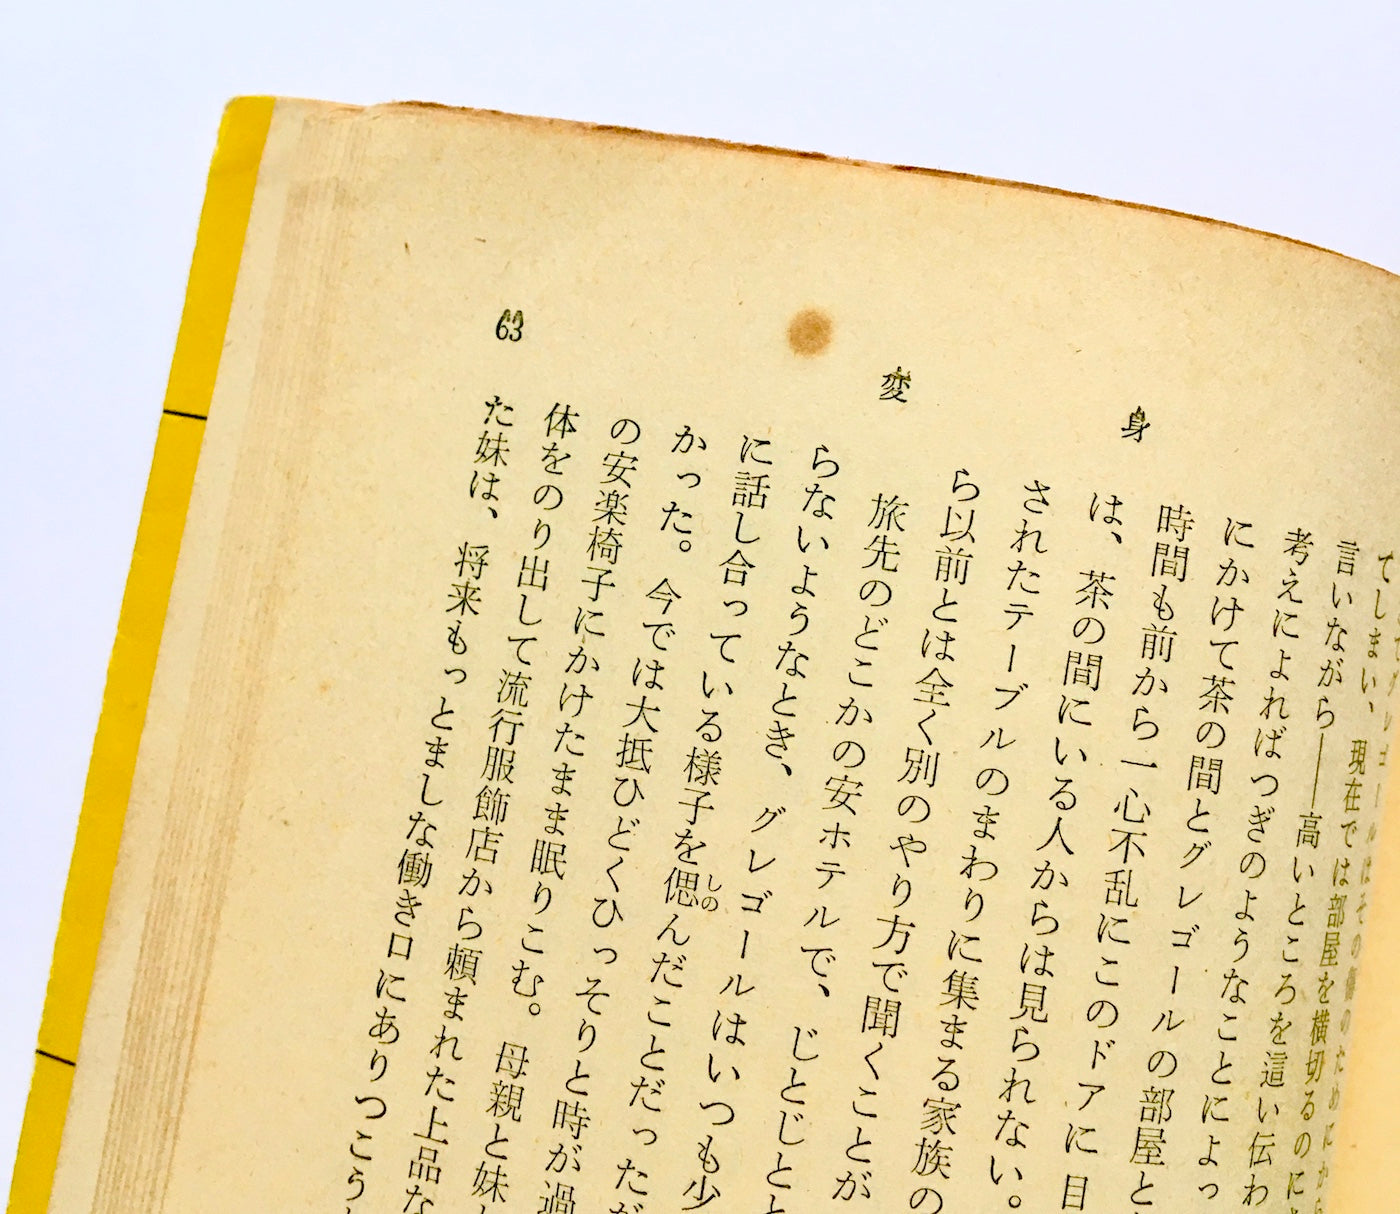 63
変身
てしまい、現在では部屋を横切るのに
言いながら――高いところを這い伝わ
考えによればつぎのようなことによっ
にかけて茶の間とグレゴールの部屋と
時間も前から一心不乱にこのドアに目
は、茶の間にいる人からは見られない。
されたテーブルのまわりに集まる家族の
ら以前とは全く別のやり方で聞くことが
旅先のどこかの安ホテルで、じとじとと
らないようなとき、グレゴールはいつも少
に話し合っている様子を偲んだことだったが
しの
かった。今では大抵ひどくひっそりと時が過
の安楽椅子にかけたまま眠りこむ。母親と妹
体をのり出して流行服飾店から頼まれた上品な
た妹は、将来もっとましな働き口にありつこう